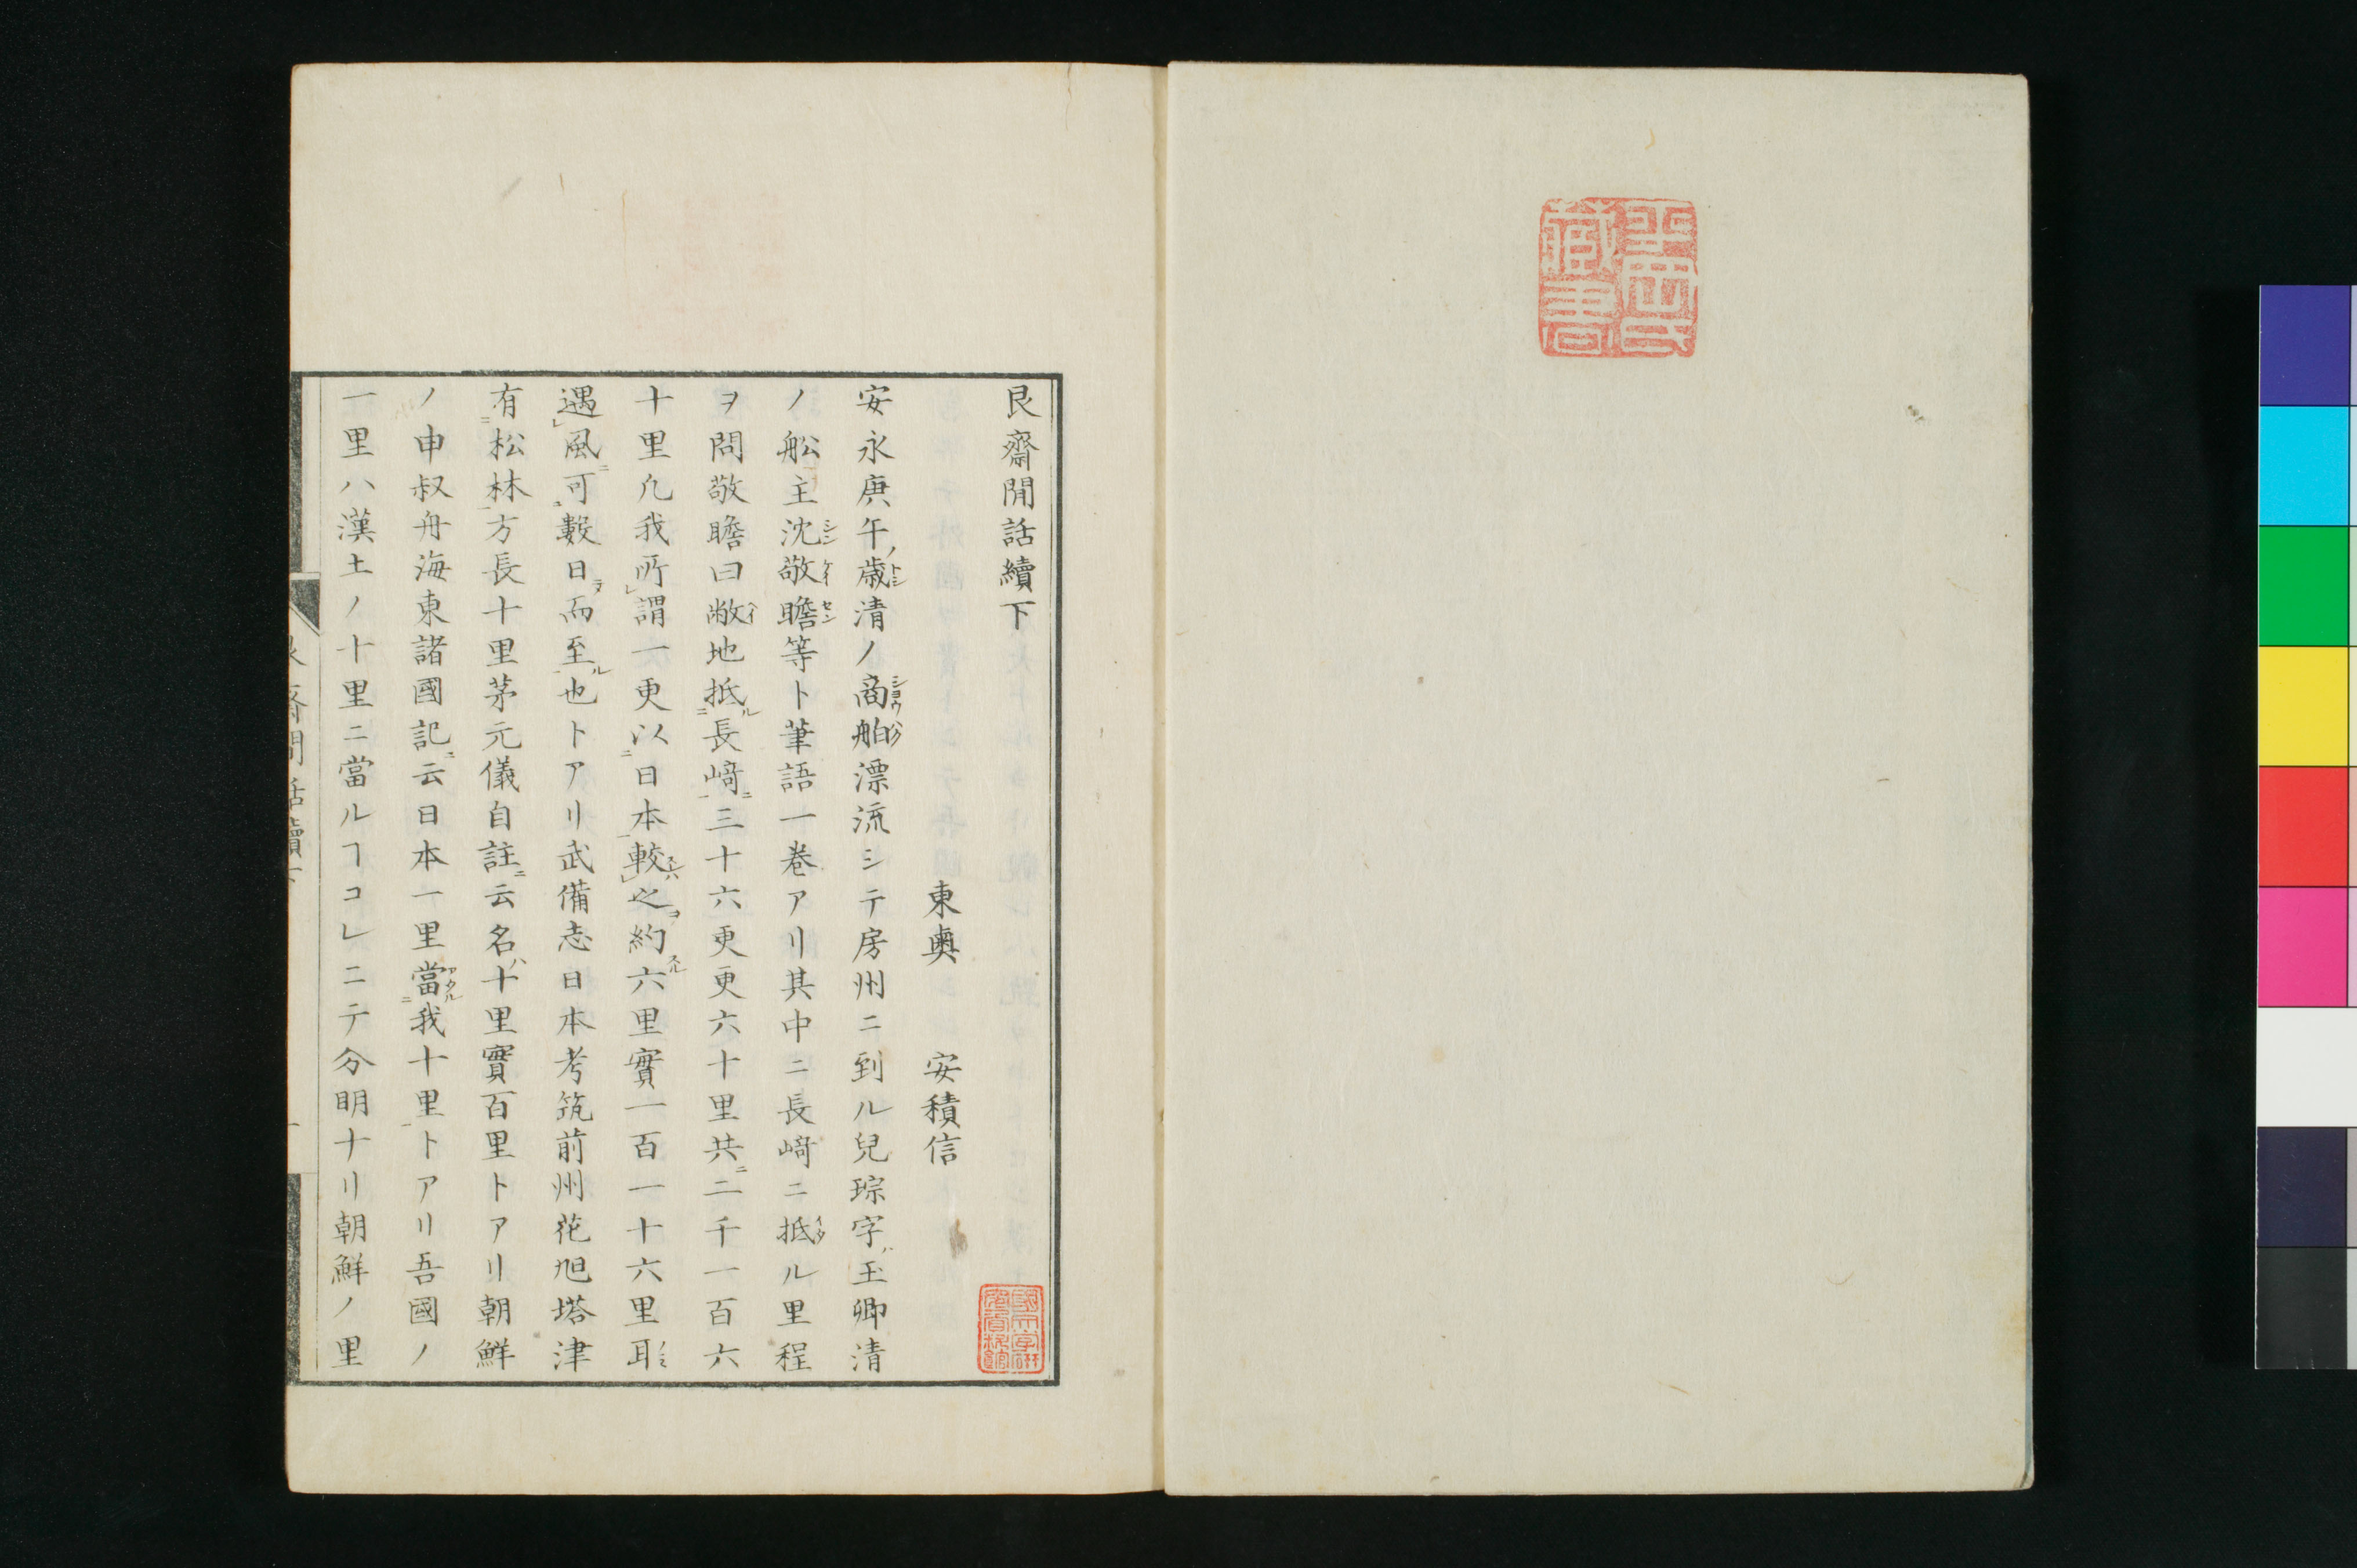 艮齋閒話續下
東奧 安積信
安永庚午歳清ノ商舶漂流シテ房州ニ到ル兒琮字玉卿清
ノ舩主沈敬瞻等ト筆語一卷アリ其中ニ長﨑ニ抵ル里程
ヲ問敬瞻曰敝地抵長﨑三十六更更六十里共二千一百六
十里凢我所謂一更以日本較之約六里實一百一十六里耳
遇風可數日而至也トアリ武備志日本考筑前州花旭塔津
有松林方長十里茅元儀自註云名十里實百里トアリ朝鮮
ノ申叔舟海東諸國記云日本一里當我十里トアリ吾國ノ
一里ハ漢土ノ十里ニ當ルヿコレニテ分明ナリ朝鮮ノ里
艮齋閒話續下 一
藏書